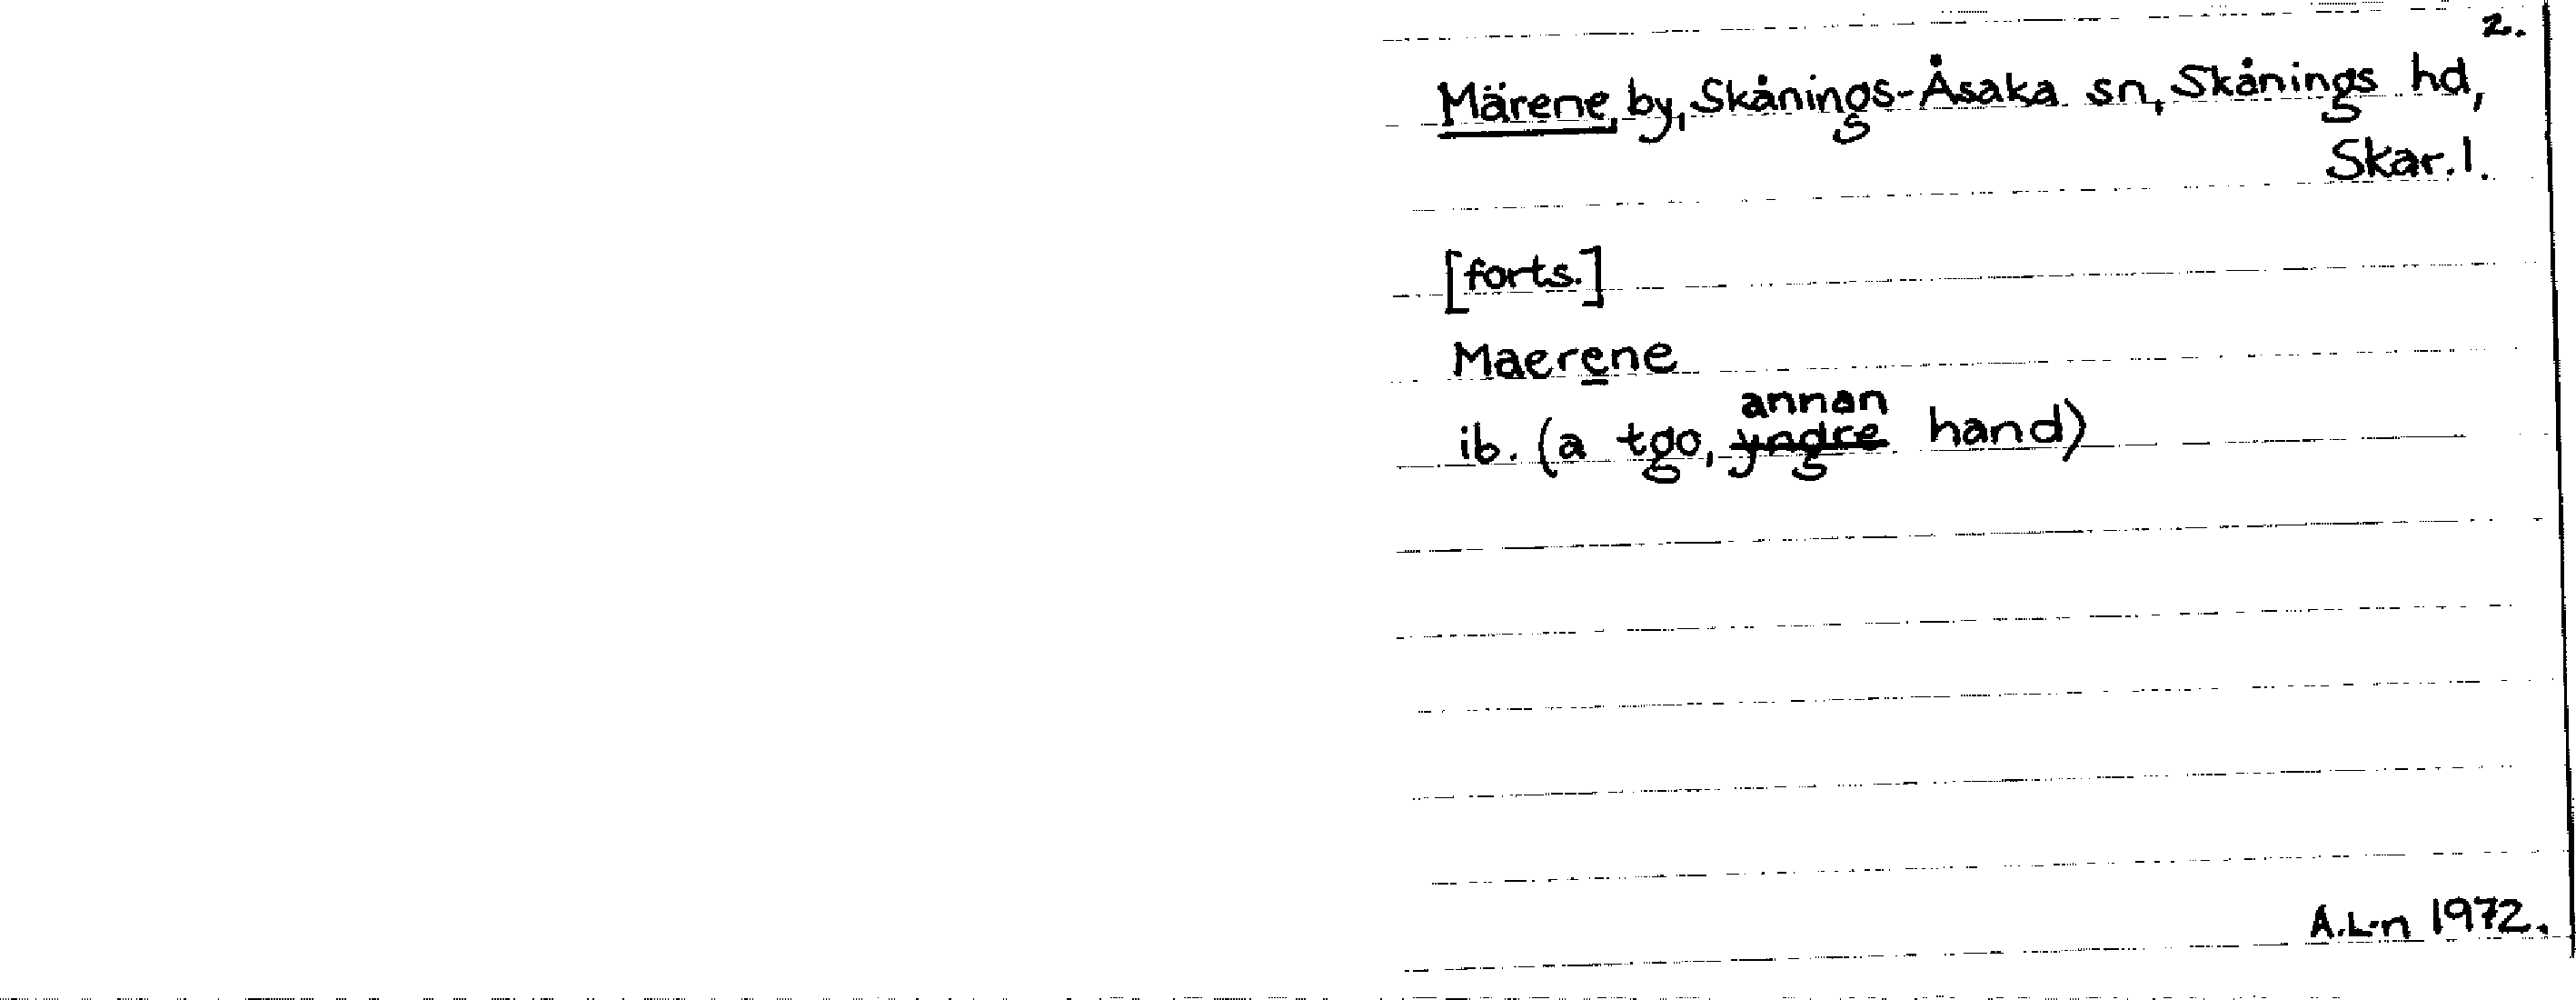 2.
Märene, by, Skånings-Åsaka sn, Skånings hd,
Skar. l.
[forts.]
Maerene
annan
ib. (a tgo, yngre hand)
A.L-n 1972.